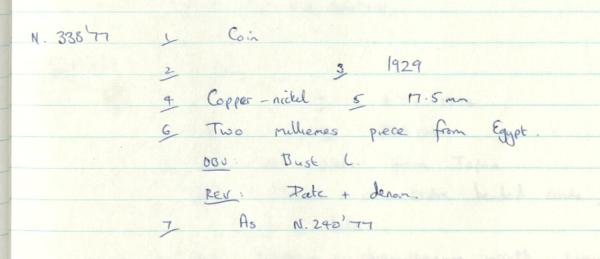 N. 338'77 1 Coin
2 3 1929
4 Copper-nickel 5 17.5mm
6 Two milliemes piece from Egypt.
OBV: Bust l.
REV: Date + denom.
7 As N.240'77